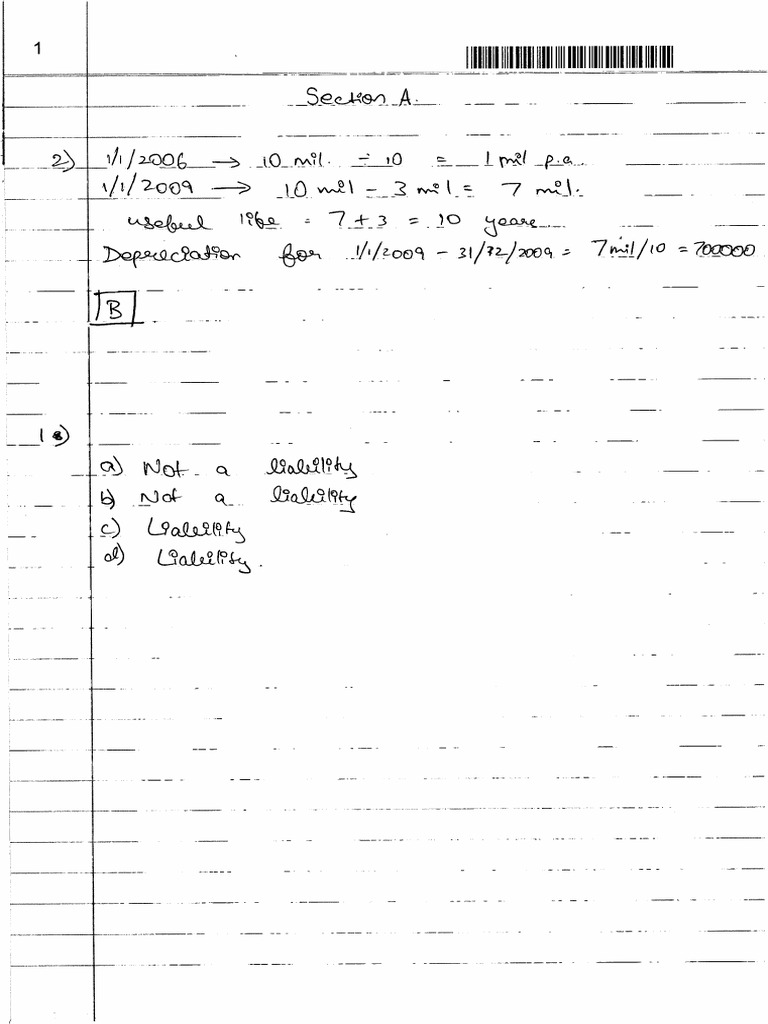 1
Section A.
2) 1/1/2006 → 10 mil. ÷ 10 = 1 mil p.a.
1/1/2009 → 10 mil - 3 mil = 7 mil.
useful life = 7 + 3 = 10 years
Depreciation for 1/1/2009 - 31/12/2009 = 7 mil/10 = 700000
B
1)
a) Not a liability
b) Not a liability
c) Liability
d) Liability.